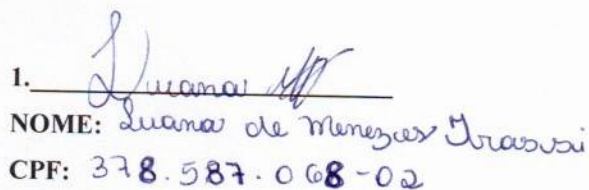 1. Luana
NOME: Luana de Menezes
CPF: 378.587.068-02